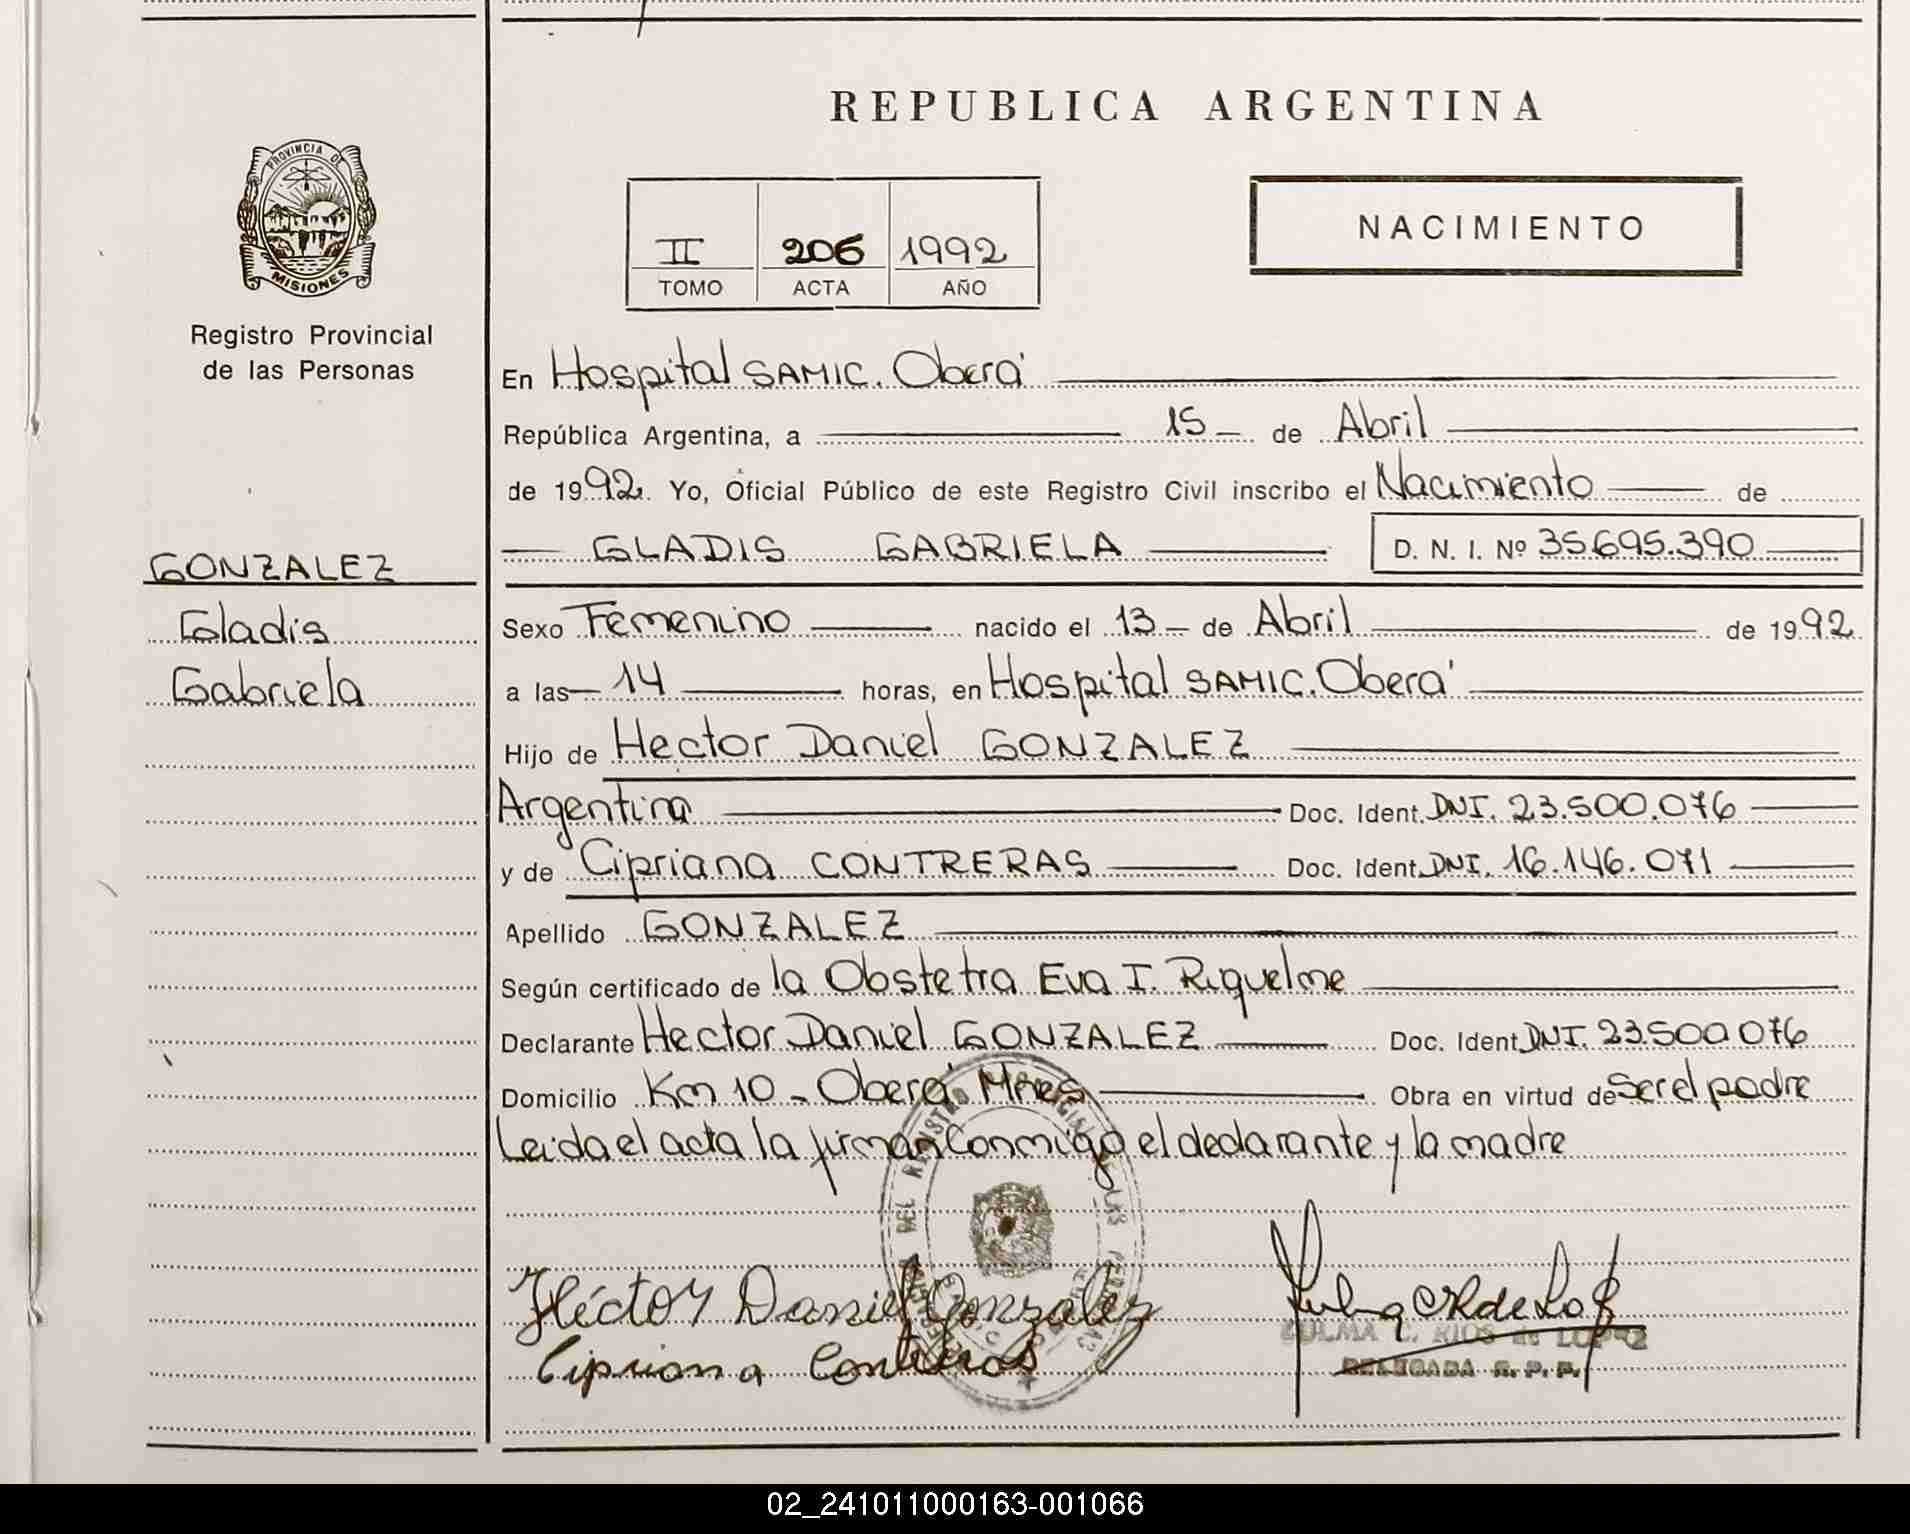 REPUBLICA ARGENTINA
PROVINCIA DE
MISIONES
Registro Provincial
de las Personas
II 206 1992
TOMO ACTA AÑO
NACIMIENTO
En Hospital SAMIC. Oberá
República Argentina, a 15 de Abril
de 1992. Yo, Oficial Público de este Registro Civil inscribo el Nacimiento de
GLADIS GABRIELA D. N. I. Nº 35.695.390
GONZALEZ
Gladis
Gabriela
Sexo Femenino nacido el 13 de Abril de 1992
a las 14 horas, en Hospital SAMIC. Oberá
Hijo de Hector Daniel GONZALEZ
Argentina Doc. Ident. DNI. 23.500.076
y de Cipriana CONTRERAS Doc. Ident. DNI. 16.146.071
Apellido GONZALEZ
Según certificado de la Obstetra Eva I. Riquelme
Declarante Hector Daniel GONZALEZ Doc. Ident. DNI. 23.500.076
Domicilio Km 10 - Oberá Mnes Obra en virtud de Ser el padre
Leida el acta la firman conmigo el declarante y la madre
Héctor Daniel Gonzalez
Cipriana Contreras
ZULMA C. RIOS de LOPEZ
DELEGADA R. P. P.
02_241011000163-001066